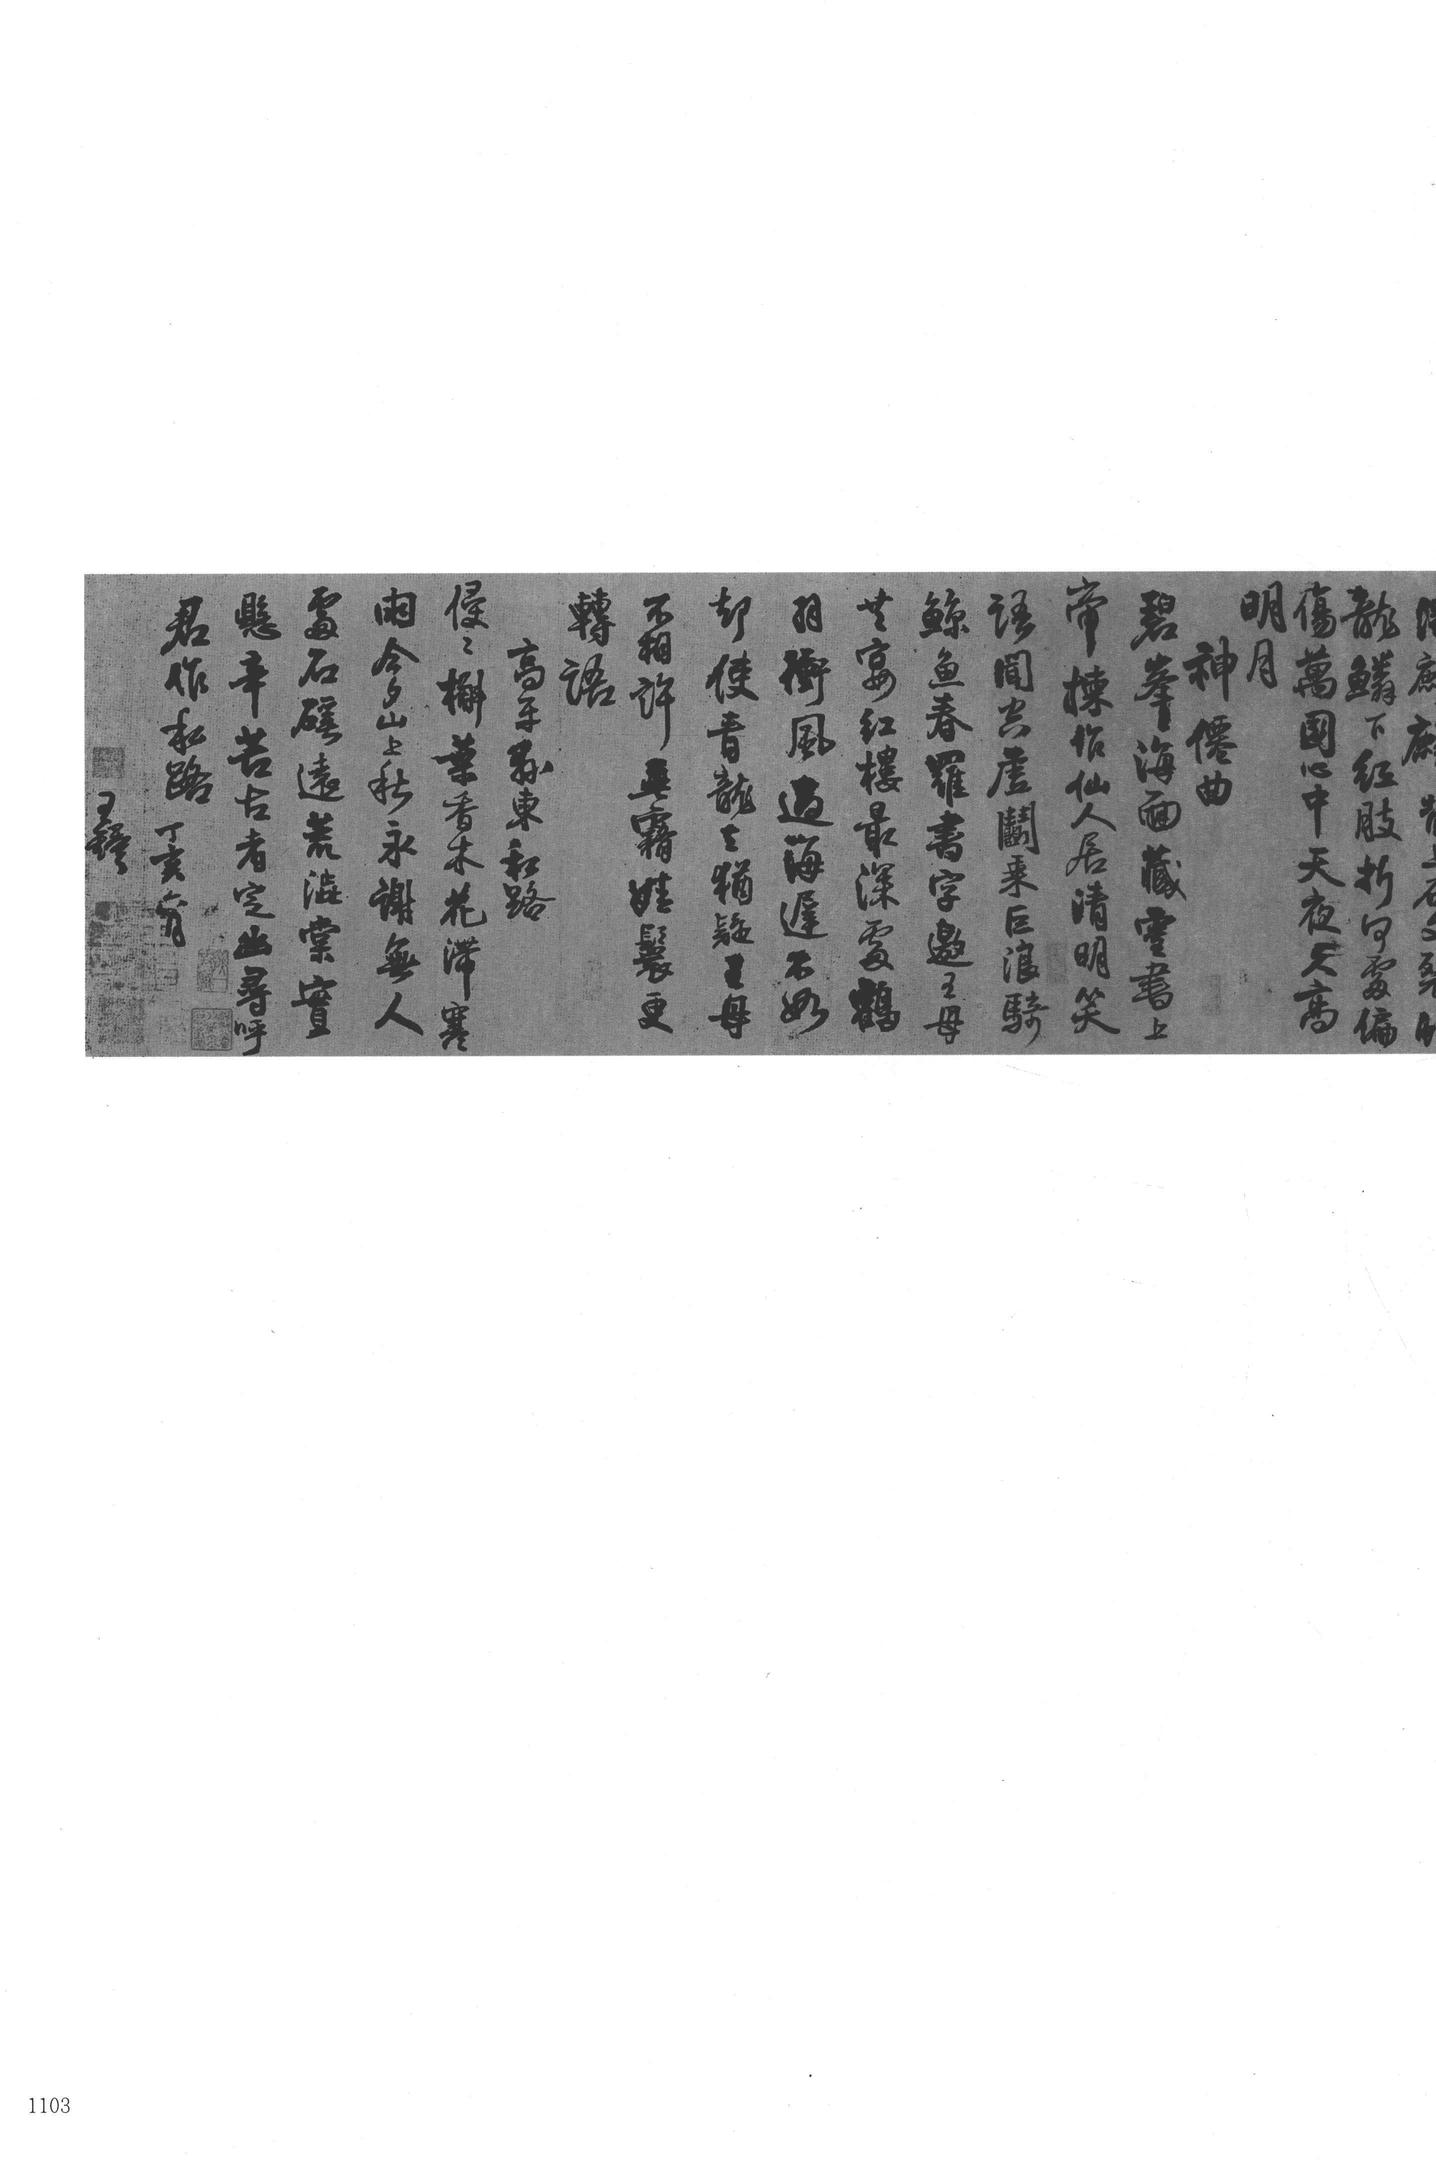 龍鱗下紅肢折何處偏
傷萬國心中天夜久高
明月
神僊曲
碧峯海面藏靈書上
帝揀作仙人居清明笑
語聞空虛鬬乘巨浪騎
鯨魚春羅書字邀王母
共宴紅樓最深處鶴
羽衝風過海遲不如
却使青龍去猶疑王母
不相許垂霧娃鬟更
轉語
高平縣東私路
侵〻槲葉香木花滯寒
雨今夕山上秋永謝無人
處石磎遠荒澁棠實
懸辛苦古者定幽尋呼
君作私路
丁亥六月
王鐸
1103